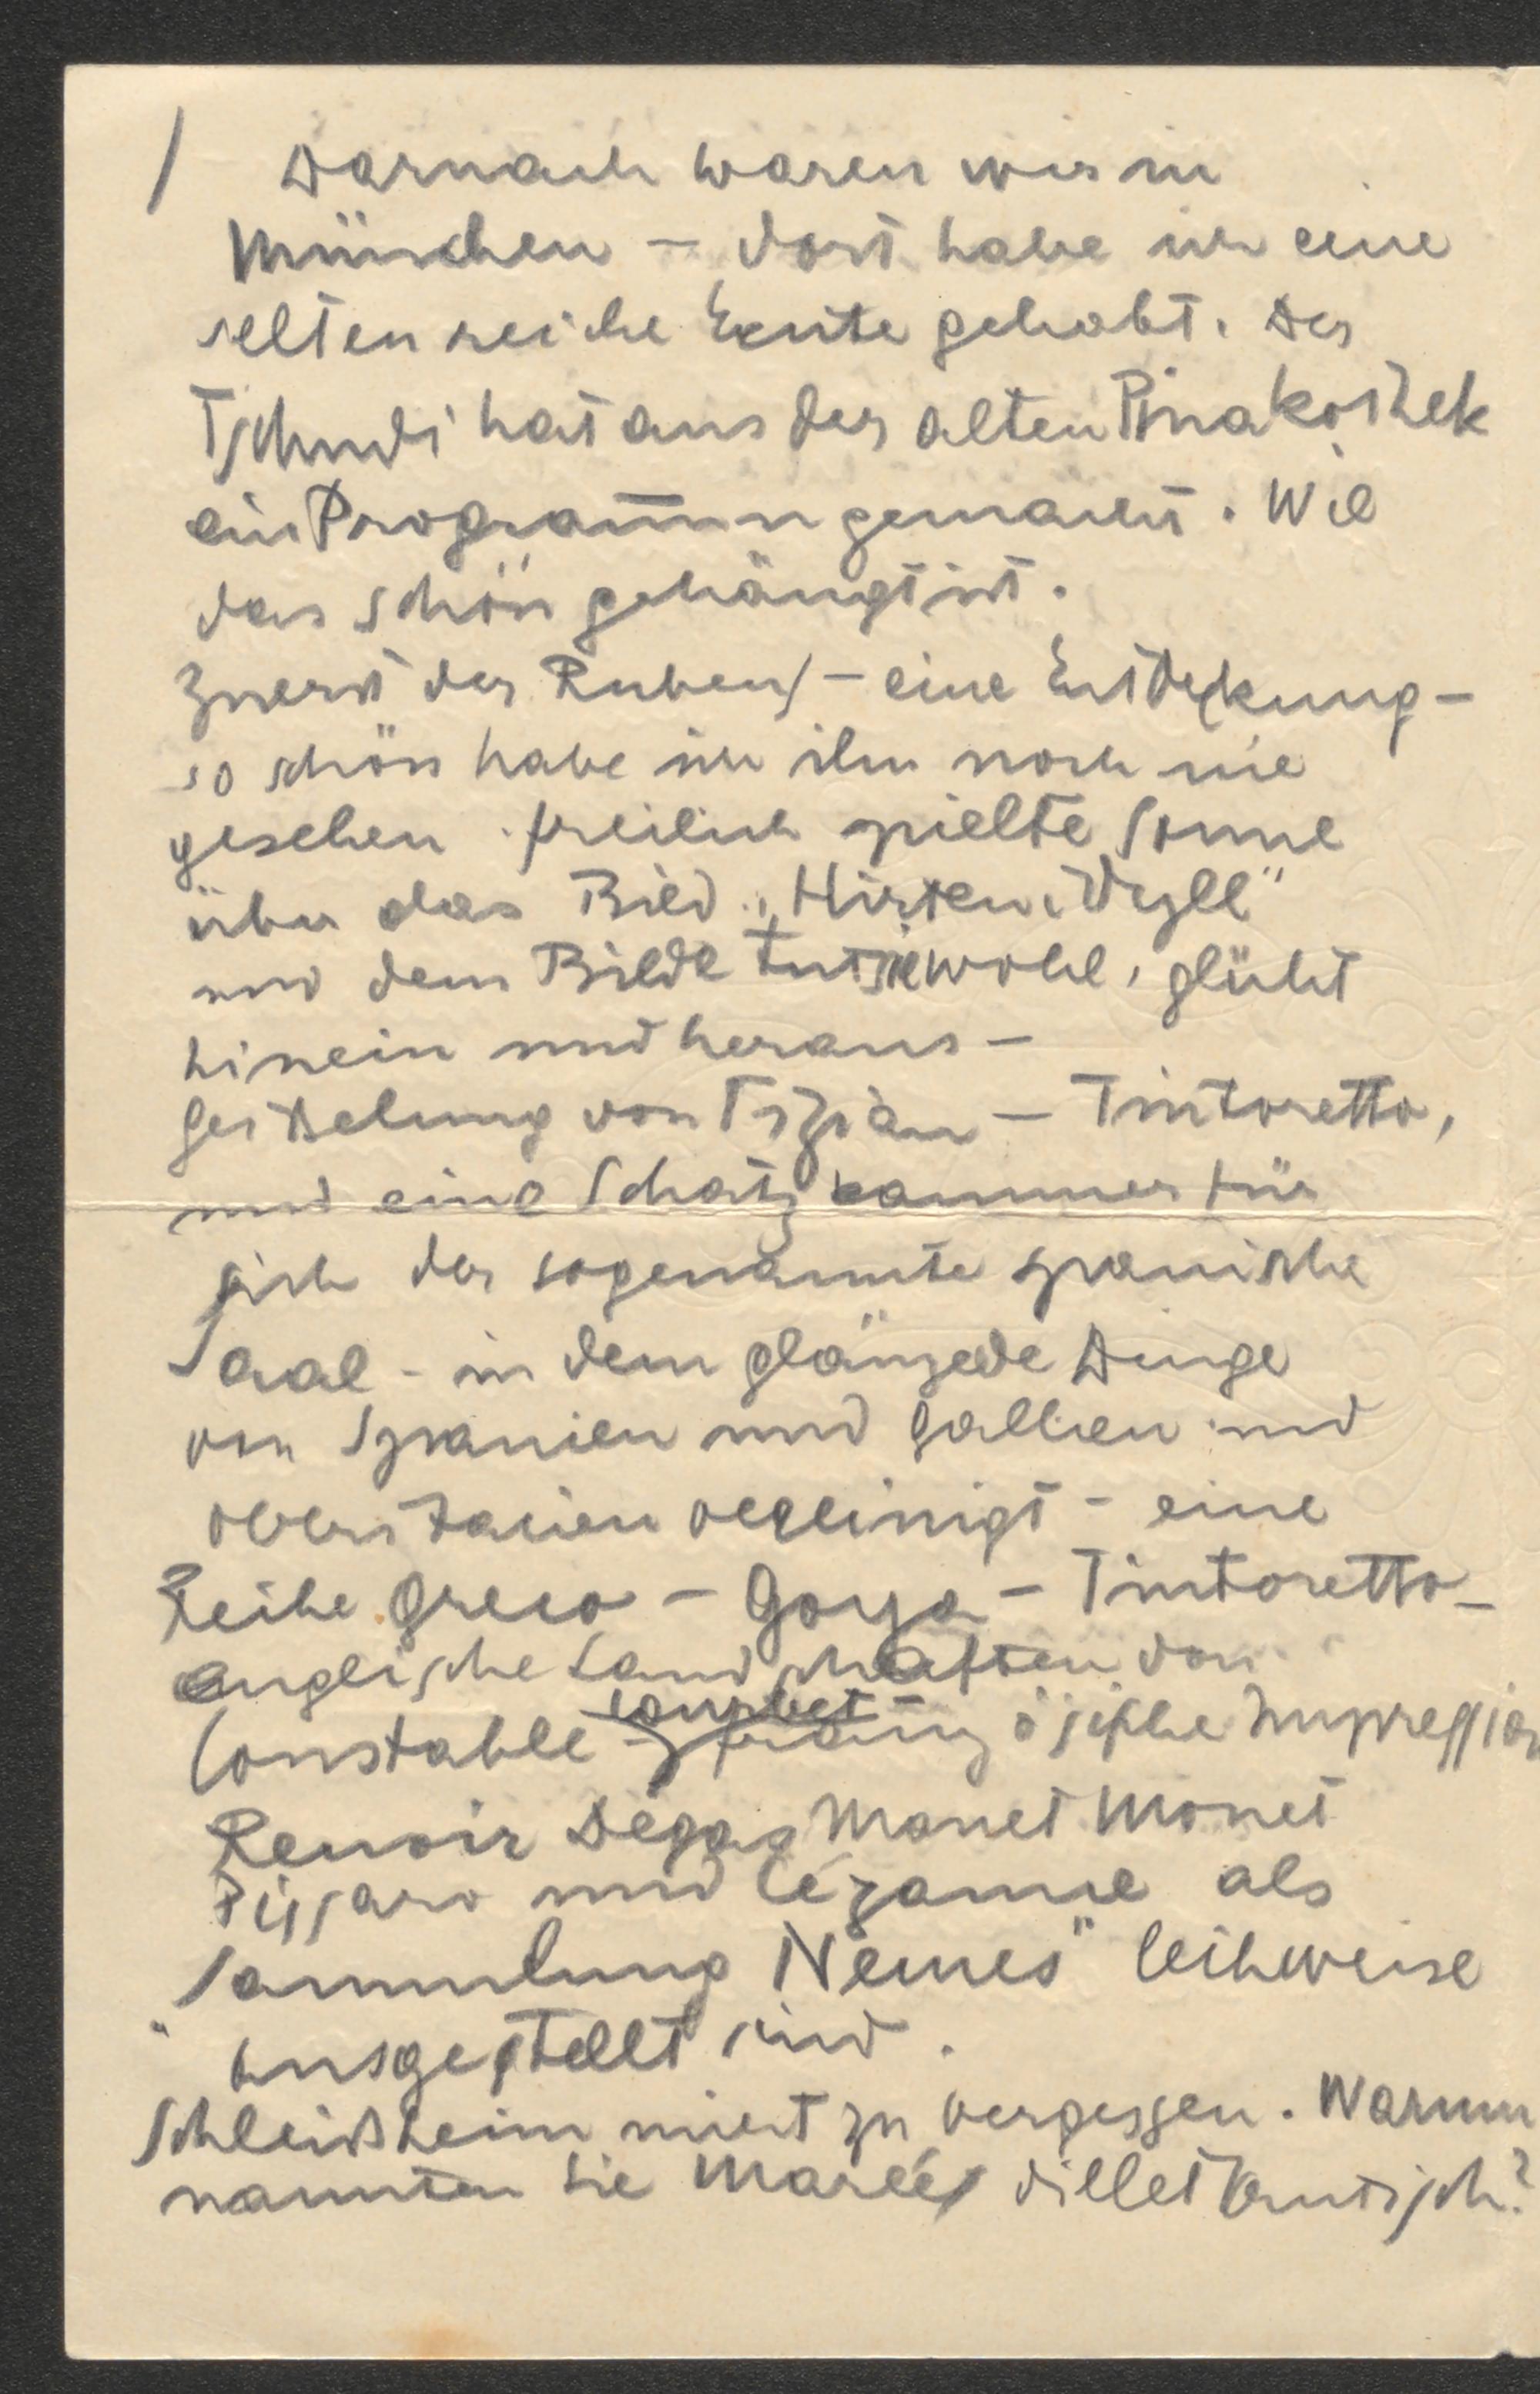 / Darnach waren wir in
München – dort habe ich eine
selten reiche Ernte gehabt. Der
Tschudi hat aus der alten Pinakothek
ein Programm gemacht. Wie
das schön gehängt ist.
Zuerst der Rubens – eine Entdeckung –
so schön habe ich ihn noch nie
gesehen. freilich spielte Sonne
über das Bild „Hirtenidyll"
und dem Bilde tut sie wohl, glüht
hinein und heraus –
Geißelung von Tizian – Tintoretto,
und eine Schatzkammer für
sich der sogenannte spanische
Saal – in dem glänzede Dinge
von Spanien und Gallien und
oberitalien vereinigt – eine
Reihe Greco – Goya – Tintoretto –
englische Landschaften von
Constable courbet französische Impression
Renoir Dégas Manet Monet
Pissaro und Cézanne als
Sammlung Nemes" leihweise
ausgestellt sind.
Schleißheim nicht zu vergessen. Warum
nannten Sie Marées dilletantisch?